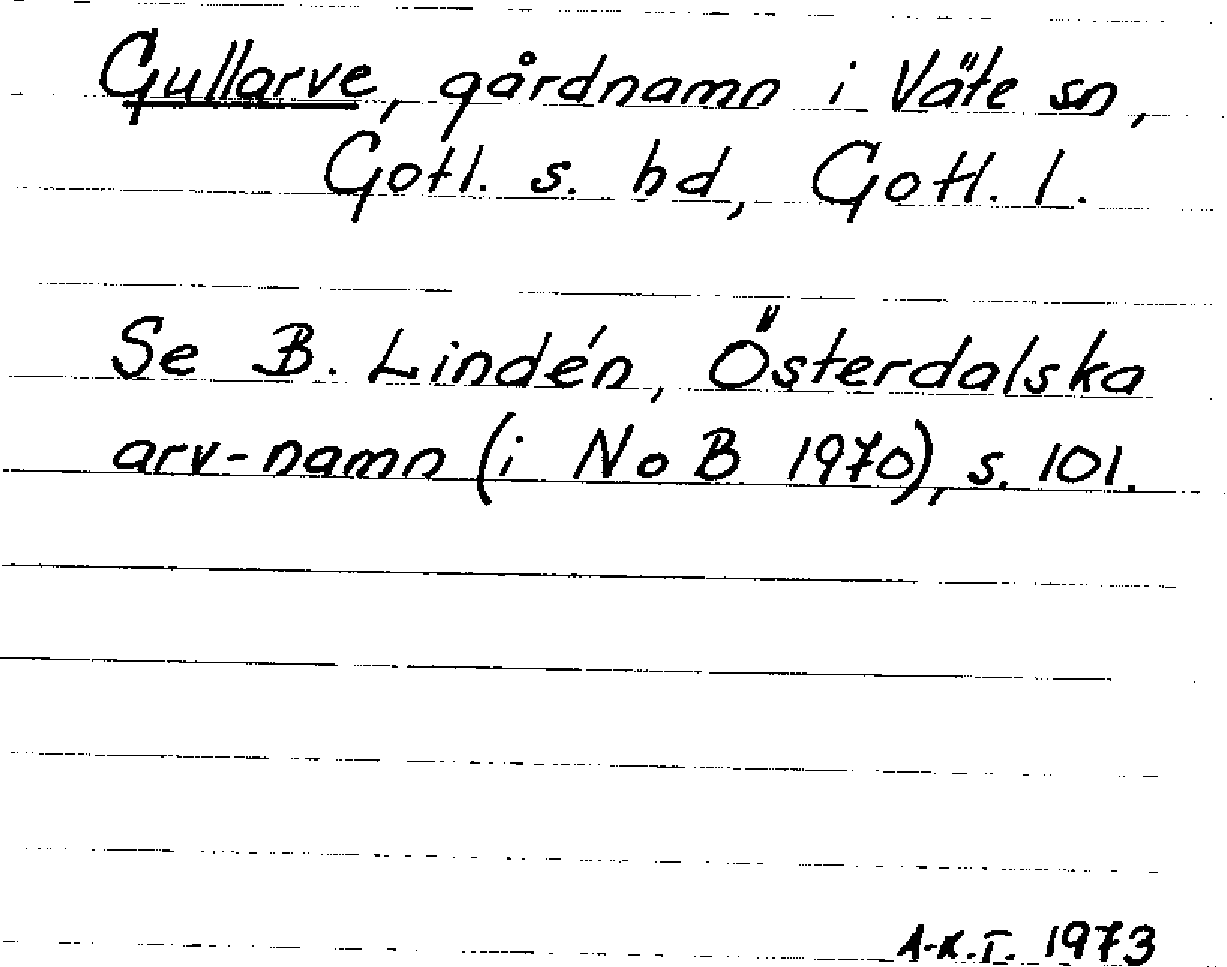 Gullarve, gårdnamn i Väte sn,
Gotl. s. hd, Gotl. l.
Se B. Lindén, Österdalska
arv-namn (i NoB 1970), s. 101.
A-K.T. 1973